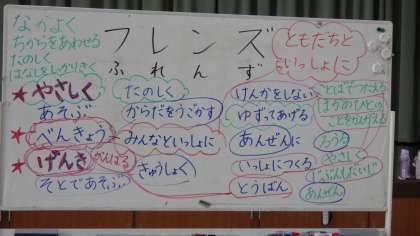 なかよく
ちからをあわせる
たのしく
はなしをしっかりきく
フレンズ
ふれんず
ともだちと
いっしょに
★やさしく
あそぶ
★べんきょう
★げんき
がんばる
そとであそぶ
たのしく
からだをうごかす
みんなといっしょに
きゅうしょく
けんかをしない
ゆずってあげる
あんぜんに
いっしょにつくる
とうばん
ことばでつたえる
ほかのひとの
ことをかんがえる
やさしく
あんぜん